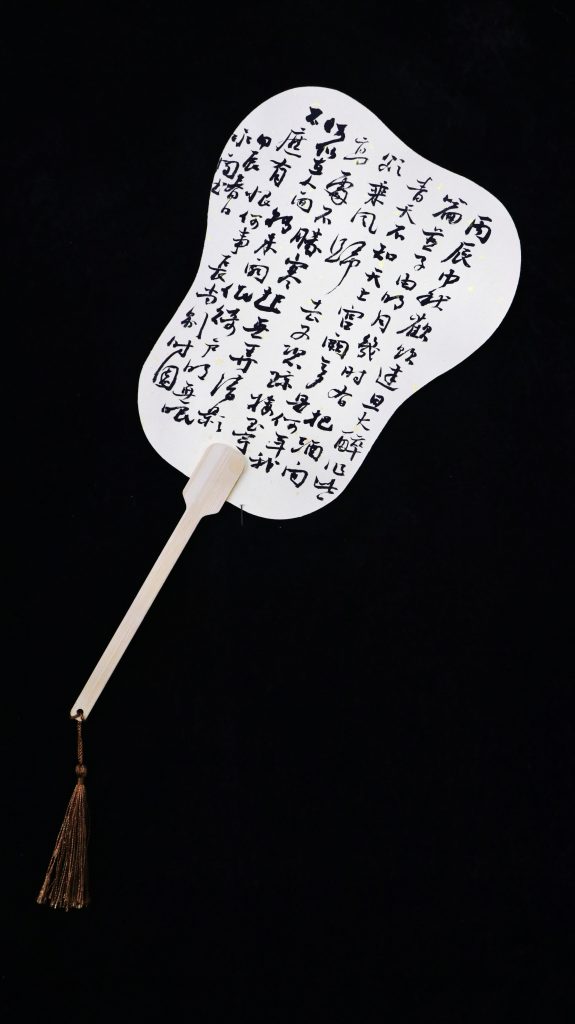 丙辰中秋歡飲達旦大醉作此
篇兼子由明月幾時有把酒問
青天不知天上宮闕今夕是何年我
欲乘風歸去又恐瓊樓玉宇
高處不勝寒起舞弄清影
何似在人間轉朱閣低綺戶照無眠
不應有恨何事長向別時圓
甲辰春日